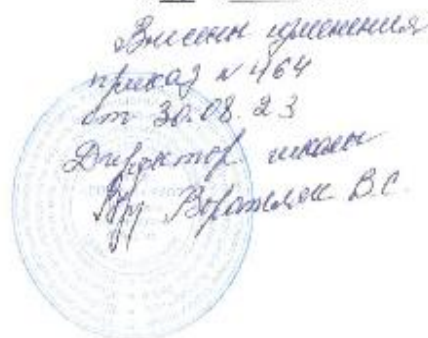 Внесены изменения
приказ № 464
от 30.08.23
Директор школы
В.С.